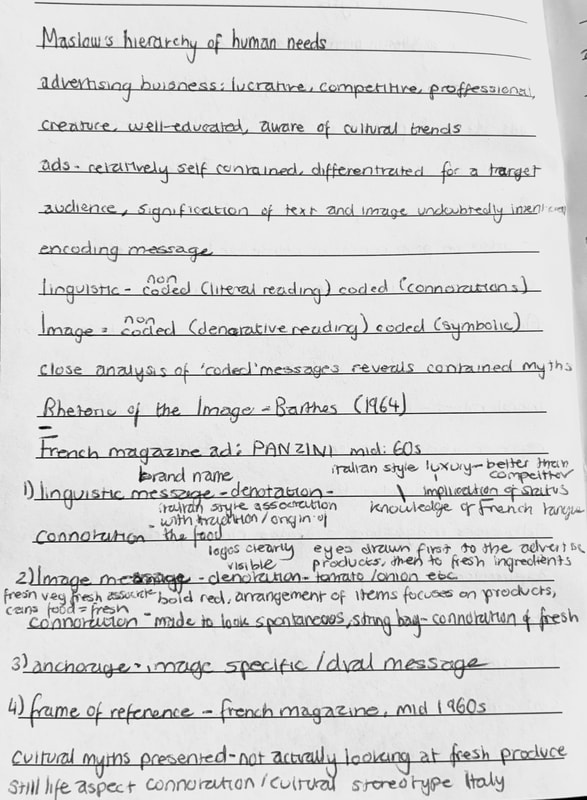 Maslow's hierarchy of human needs
advertising buisness: lucrative, competitive, proffessional,
creative, well-educated, aware of cultural trends
ads - relatively self contained, differentiated for a target
audience, signification of text and image undoubtedly
encoding message
linguistic - non coded (literal reading) coded (connotations)
Image = non coded (denotative reading) coded (symbolic)
close analysis of 'coded' messages reveals contained myths
Rhetoric of the Image - Barthes (1964)
French magazine ad: PANZINI mid: 60s
brand name
italian style luxury - better than competitor
1) linguistic message - denotation -
implication of status
italian style association
knowledge of French langue
- with tradition/origin of
connotation - the food
logos clearly visible
eyes drawn first to the advertise
products, then to fresh ingredients
2) Image message - denotation - tomato/onion etc
fresh veg fresh associate
bold red, arrangement of items focuses on products,
cans food = fresh
connotation - made to look spontaneous, string bag - connotation of fresh
3) anchorage - image specific / dual message
4) frame of reference - french magazine, mid 1960s
cultural myths presented - not actually looking at fresh produce
still life aspect connotation / cultural stereotype Italy